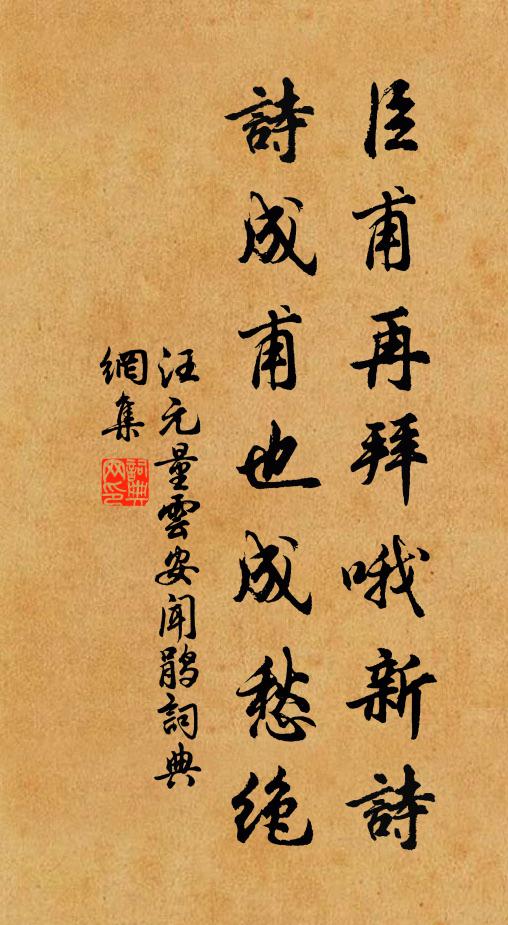 臣甫再拜哦新詩
詩成甫也成愁绝
汪元量雲安闻鹃詞典
網集
詞典
网印